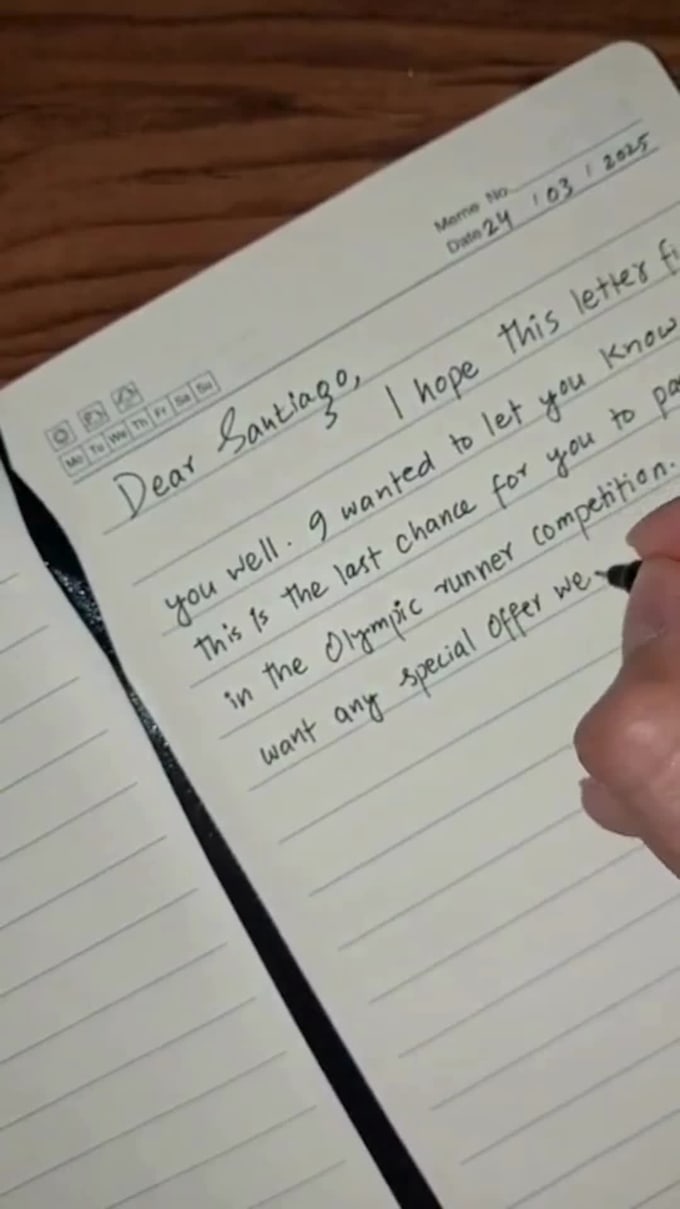 Memo No.
Date 24 / 03 / 2025
Mo Tu We Th Fr Sa Su
Dear Santiago,
I hope this letter fi
you well. I wanted to let you know
this is the last chance for you to pa
in the Olympic runner competition.
want any special offer we